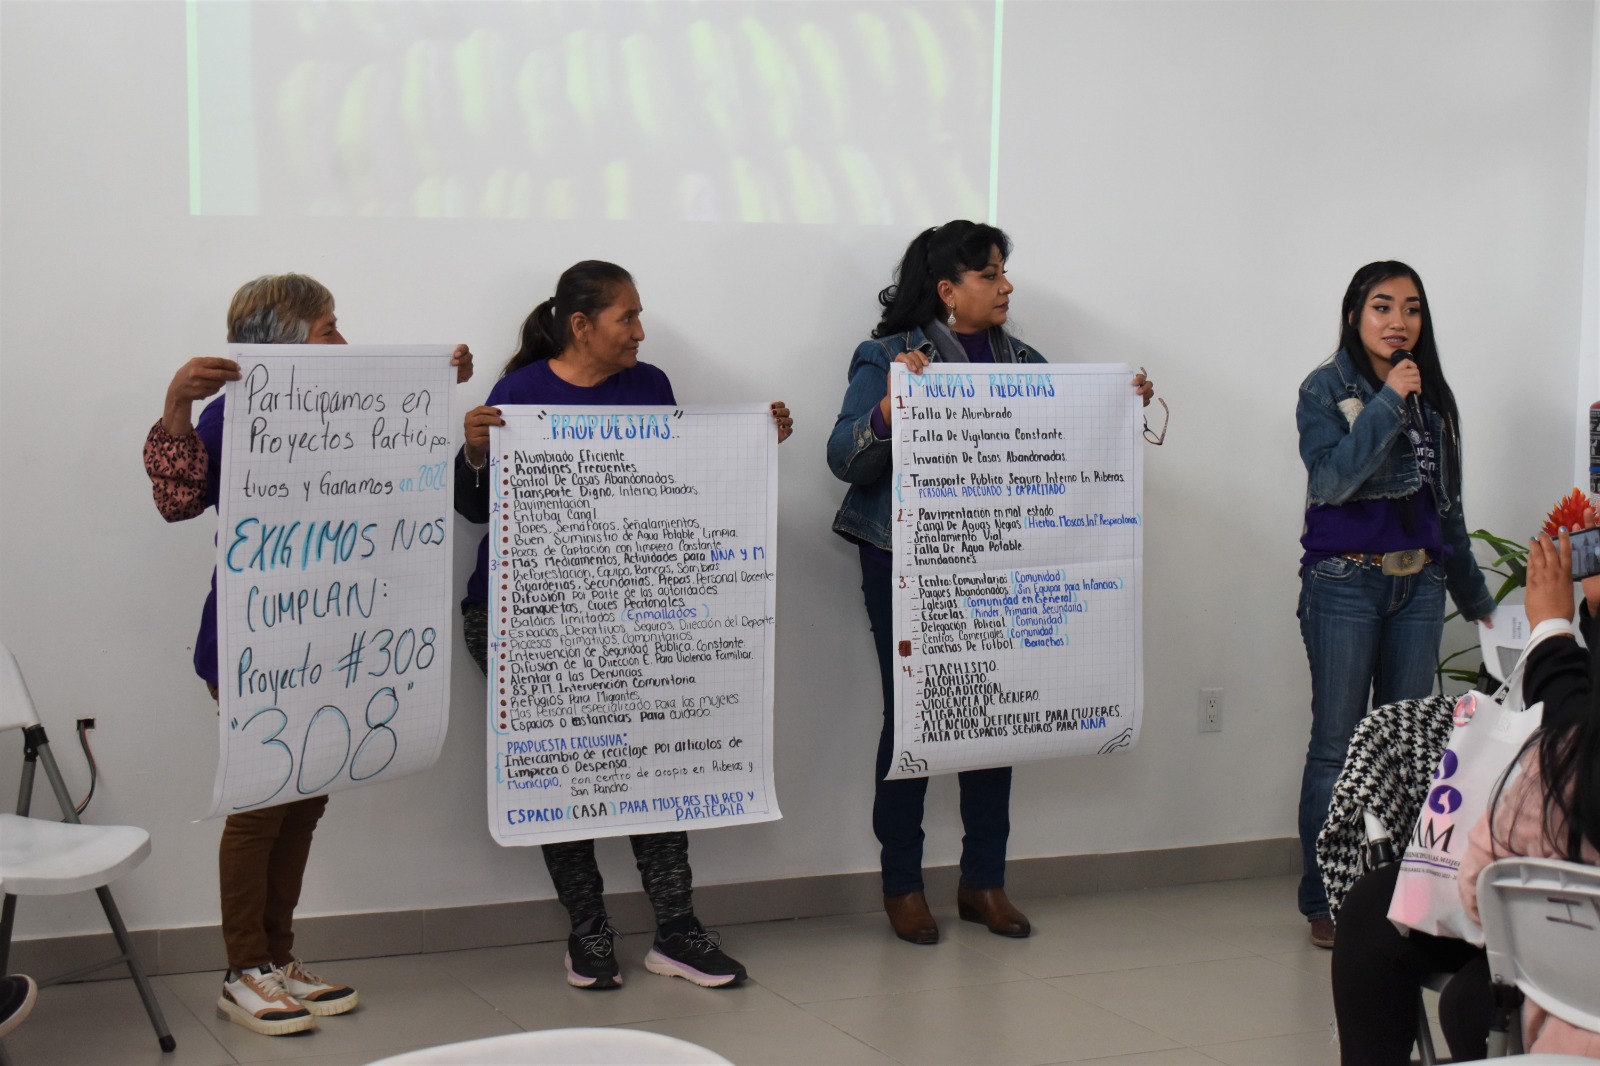 Participamos en
Proyectos Participa-
tivos y Ganamos en 2022
EXIGIMOS NOS
CUMPLAN:
Proyecto #308
"308"
"PROPUESTAS"
1-
• Alumbrado Eficiente
• Rondines Frecuentes
• Control De Casas Abandonadas.
• Transporte Digno, Interno, Paradas.
2-
• Pavimentación
• Entubar Canal
• Topes, Semáforos, Señalamientos
• Buen Suministro de Agua Potable, Limpia.
• Pozos de Captación con limpieza Constante
3-
• Más Medicamentos, Actividades para NNA Y M
• Reforestación, Equipo, Bancas, Sombras.
• Guarderías, Secundarias, Prepas, Personal Docente
• Difusión por Parte de las autoridades
• Banquetas, Cruces Peatonales
• Baldíos limitados (Enmallados)
• Espacios Deportivos Seguros, Dirección del Deporte
4-
• Procesos Formativos Comunitarios
• Intervención de Seguridad Publica Constante.
• Difusión de la Dirección E. Para Violencia Familiar.
• Alentar a las Denuncias
• SS.P.M. Intervención Comunitaria
• Refugios Para Migrantes.
• Mas Personal especializado para las mujeres
• Espacios o instancias para cuidado.
PROPUESTA EXCLUSIVA:
Intercambio de reciclaje por articulos de
Limpieza ó Despensa.
Municipio, con centro de acopio en Riberas y
San Pancho.
ESPACIO (CASA) PARA MUJERES EN RED Y
PARTERIA
MUCPAS RIBERAS
1.
- Falla De Alumbrado
- Falla De Vigilancia Constante.
- Invación De Casas Abandonadas.
- Transporte Público Seguro Interno En Riberas.
PERSONAL ADECUADO Y CAPACITADO
2.- Pavimentación en mal estado
- Canal De Aguas Negras (Hierba, Moscos, Inf Respiratorias)
- Señalamiento Vial.
- Falla De Agua Potable.
- Inundaciones
3.- Centro Comunitario (Comunidad)
- Parques Abandonados (Sin Equipar para Infancias)
- Iglesias (Comunidad en General)
- Escuelas (Kinder, Primaria, Secundaria)
- Delegación Policial (Comunidad)
- Centros Comerciales (Comunidad)
- Canchas De Futbol (Borrachos)
4.- MACHISMO.
- ALCOHLISMO.
- DROGADICCIÓN
- VIOLENCIA DE GÉNERO.
- MIGRACIÓN
- ATENCIÓN DEFICIENTE PARA MUJERES.
- FALTA DE ESPACIOS SEGUROS PARA NNA